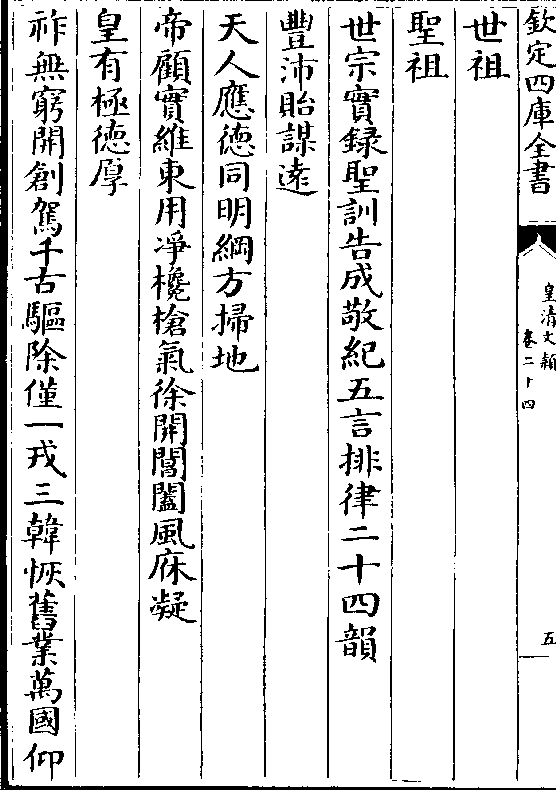 欽定四庫全書
皇清文穎
卷二十四
五
世祖
聖祖
世宗實録聖訓告成敬紀五言排律二十四韻
豐沛貽謀遠
天人應德同明綱方掃地
帝顧實維東用凈欃槍氣徐開閶闔風庥凝
皇有極德厚
祚無窮開創駕千古驅除僅一戎三韓恢舊業萬國仰